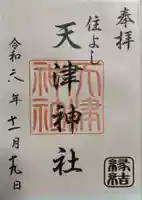 奉拝
住よし
天津神社
令和六年十一月十九日
縁結